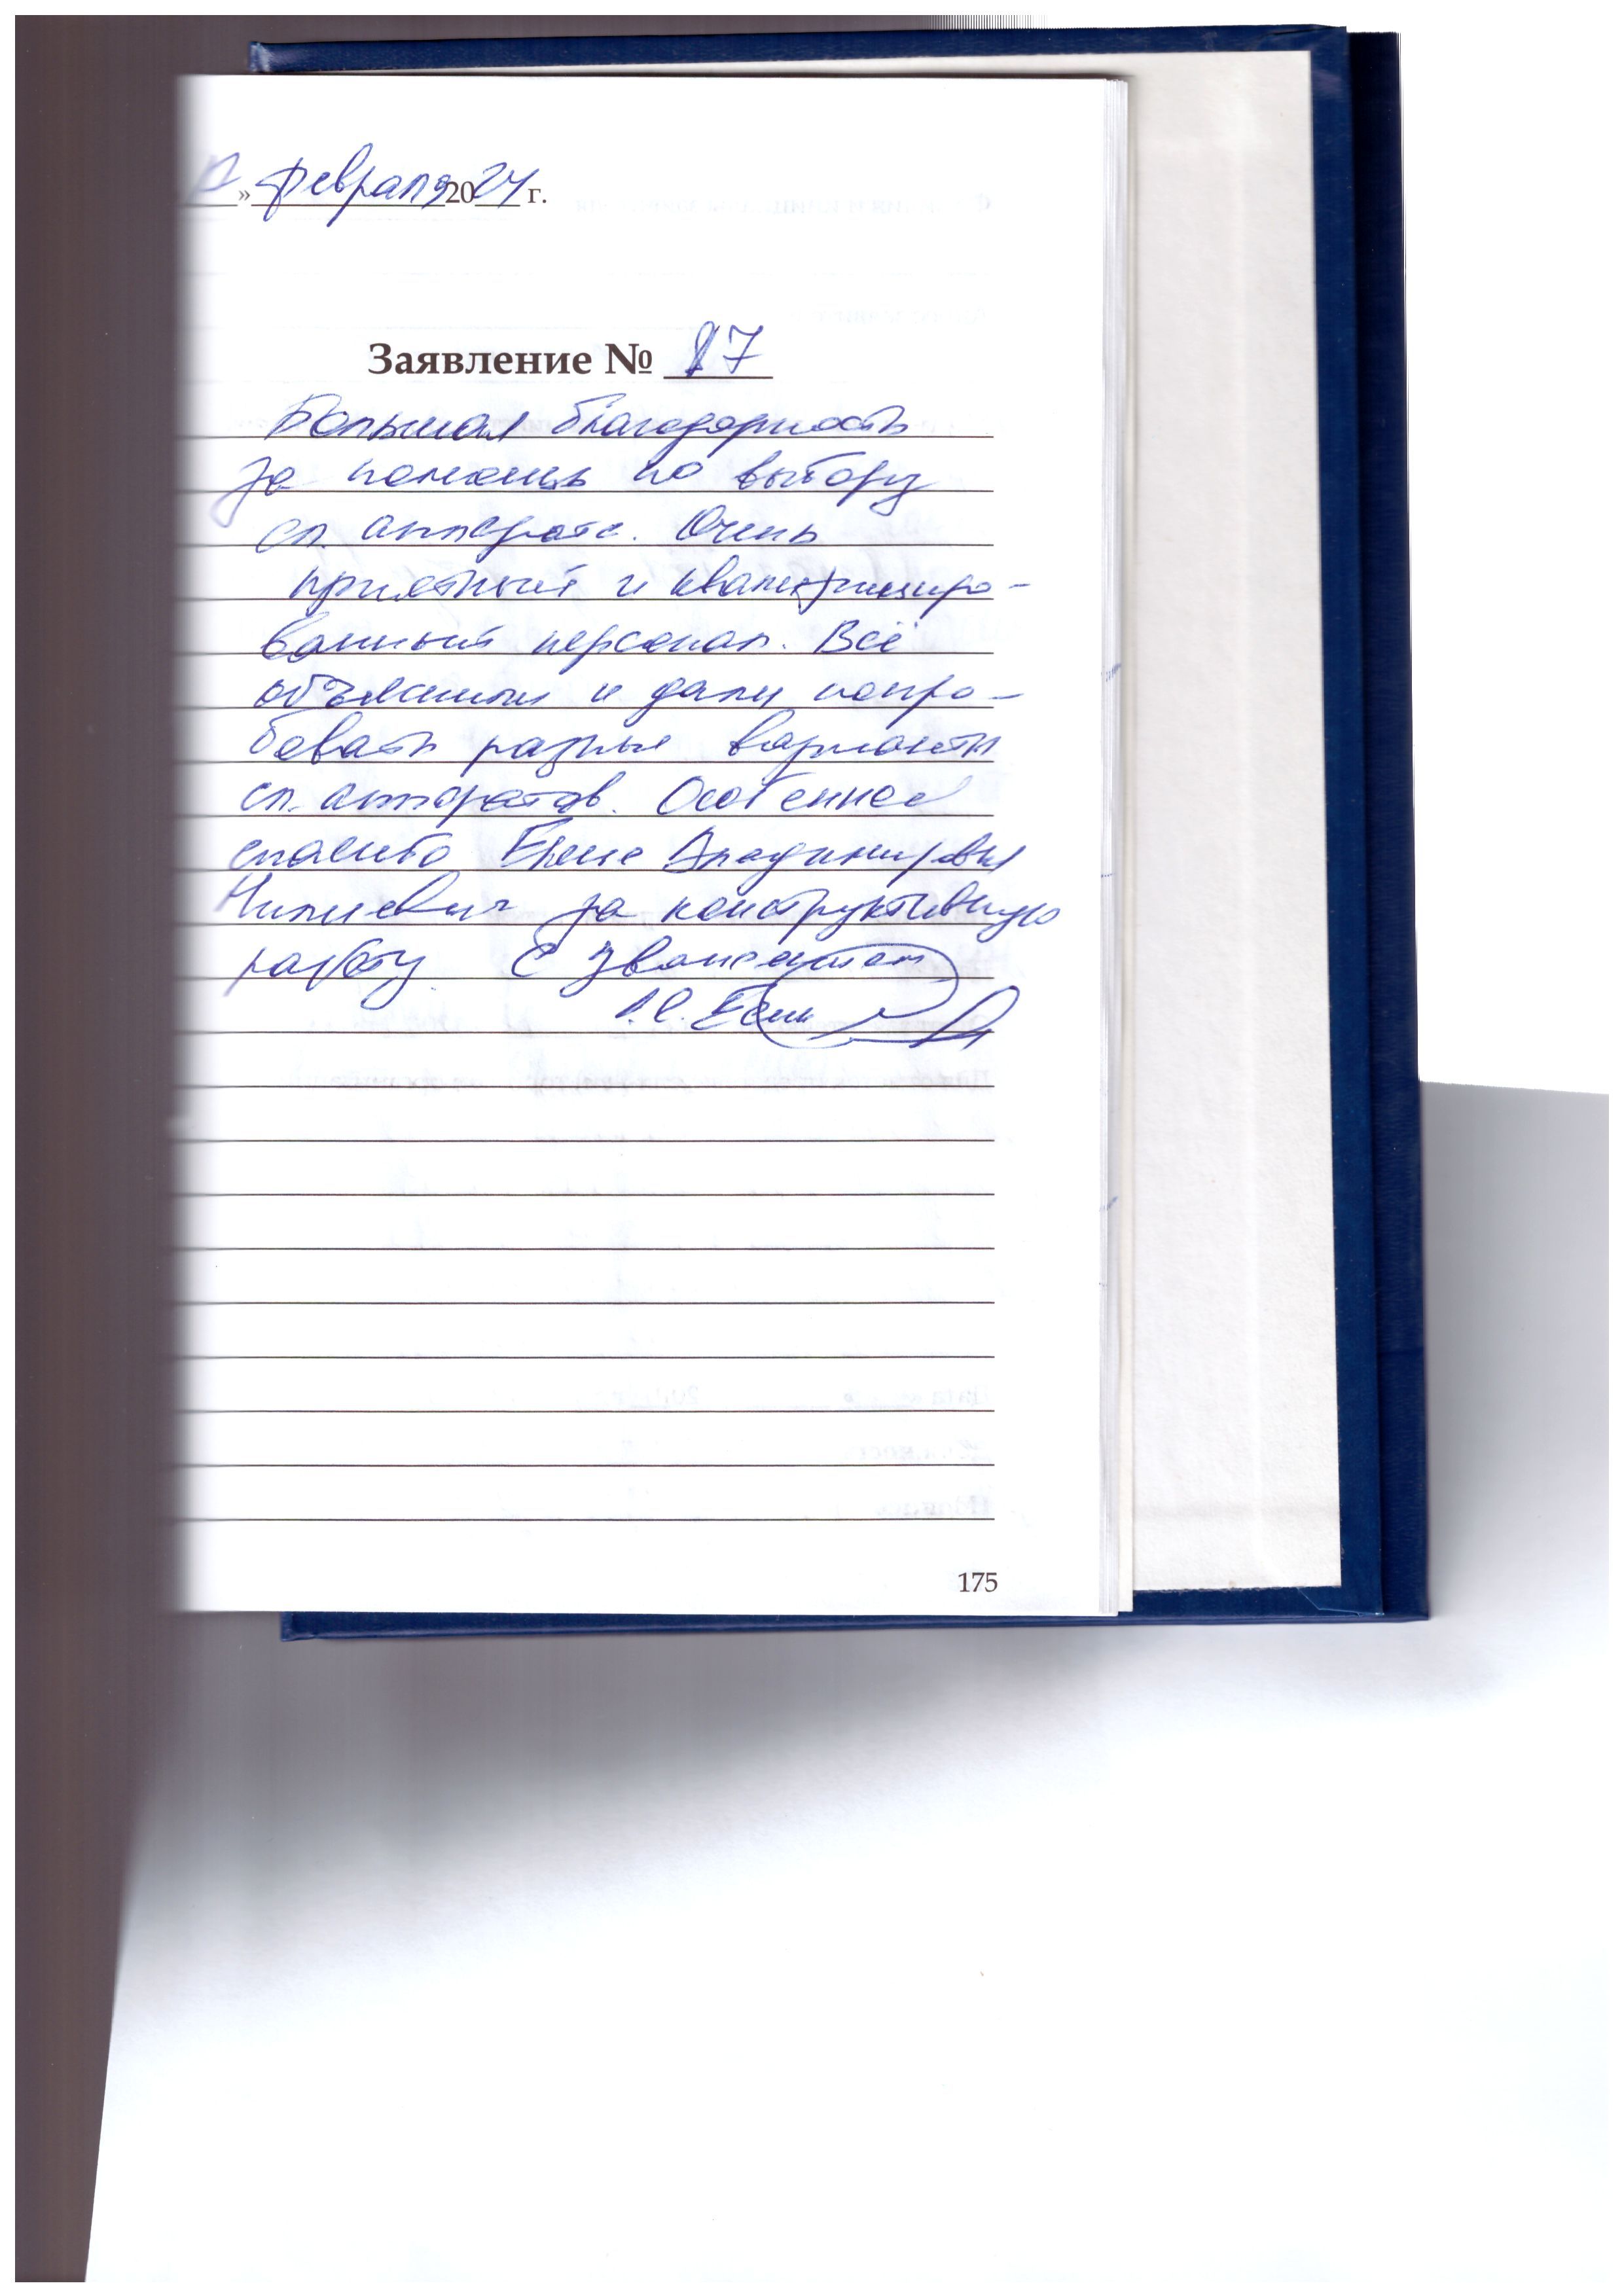 » февраля 2024 г.
Заявление № 87
Большая благодарность
за помощь по выбору
сл. аппарата. Очень
приятный и квалифициро-
ванный персонал. Всё
объяснили и дали попро-
бовать разные варианты
сл. аппаратов. Особенное
спасибо Елене Владимировне
за конструктивную
работу. С уважением
175